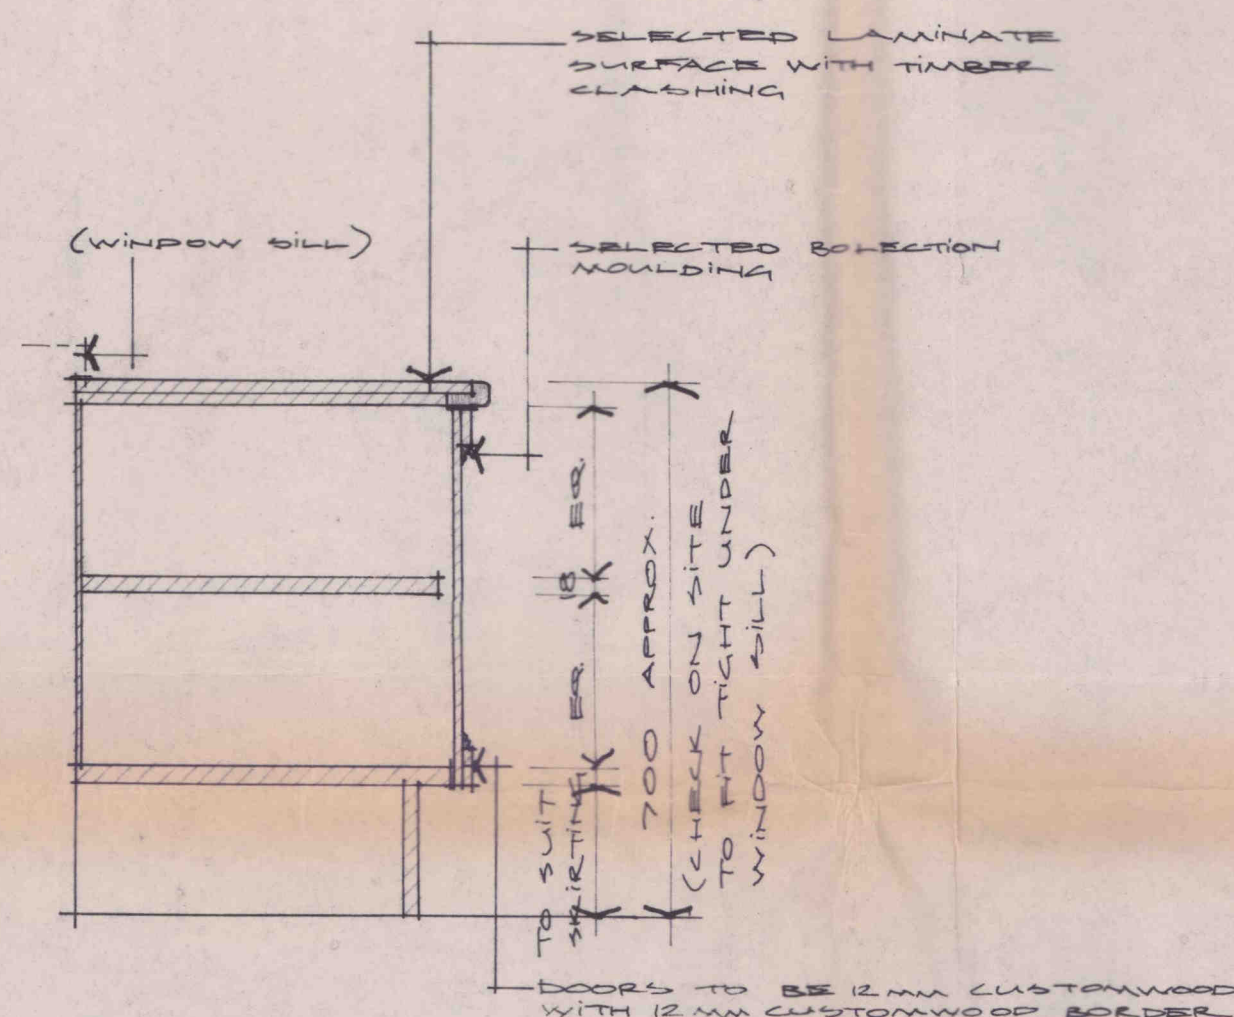 SELECTED LAMINATE
SURFACE WITH TIMBER
CLASHING
(WINDOW SILL)
SELECTED BOLECTION
MOULDING
EQ.
18
EQ.
TO SUIT
SKIRTING
700 APPROX.
(CHECK ON SITE
TO FIT TIGHT UNDER
WINDOW SILL)
DOORS TO BE 12MM CUSTOMWOOD
WITH 12MM CUSTOMWOOD BORDER